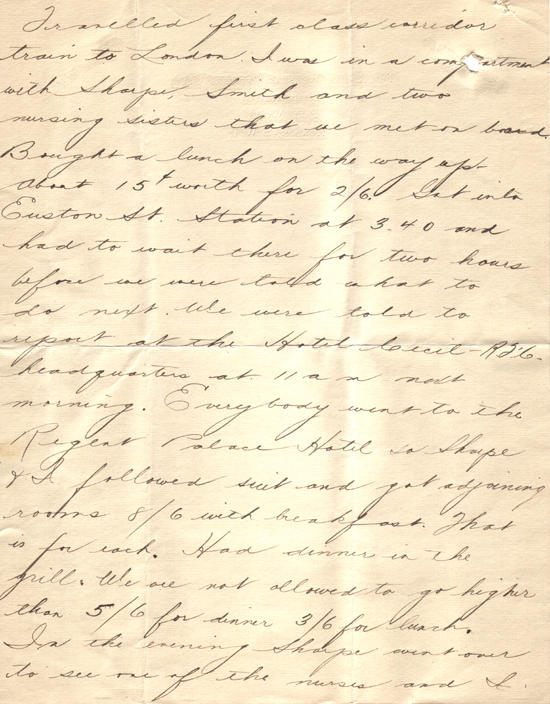 Travelled first class corridor
train to London. I was in a compartment
with Sharpe, Smith and two
nursing sisters that we met on board.
Bought a lunch on the way up
about 15¢ worth for 2/6. Got into
Euston St. Station at 3.40 and
had to wait there for two hours
before we were told what to
do next. We were told to
report at the Hotel Cecil - R.F.C.
headquarters at 11 a m next
morning. Everybody went to the
Regent Palace Hotel so Sharpe
& I followed suit and got adjoining
rooms 8/6 with breakfast. That
is for each. Had dinner in the
grill. We are not allowed to go higher
than 5/6 for dinner 3/6 for lunch.
In the evening Sharpe went over
to see one of the nurses and I.